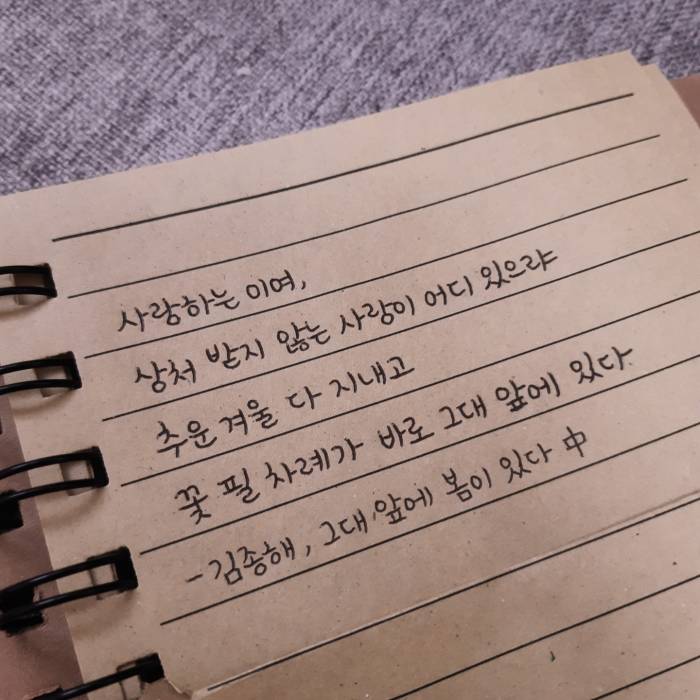 사랑하는 이여,
상처 받지 않는 사랑이 어디 있으랴
추운 겨울 다 지내고
꽃 필 차례가 바로 그대 앞에 있다
- 김종해, 그대 앞에 봄이 있다 中